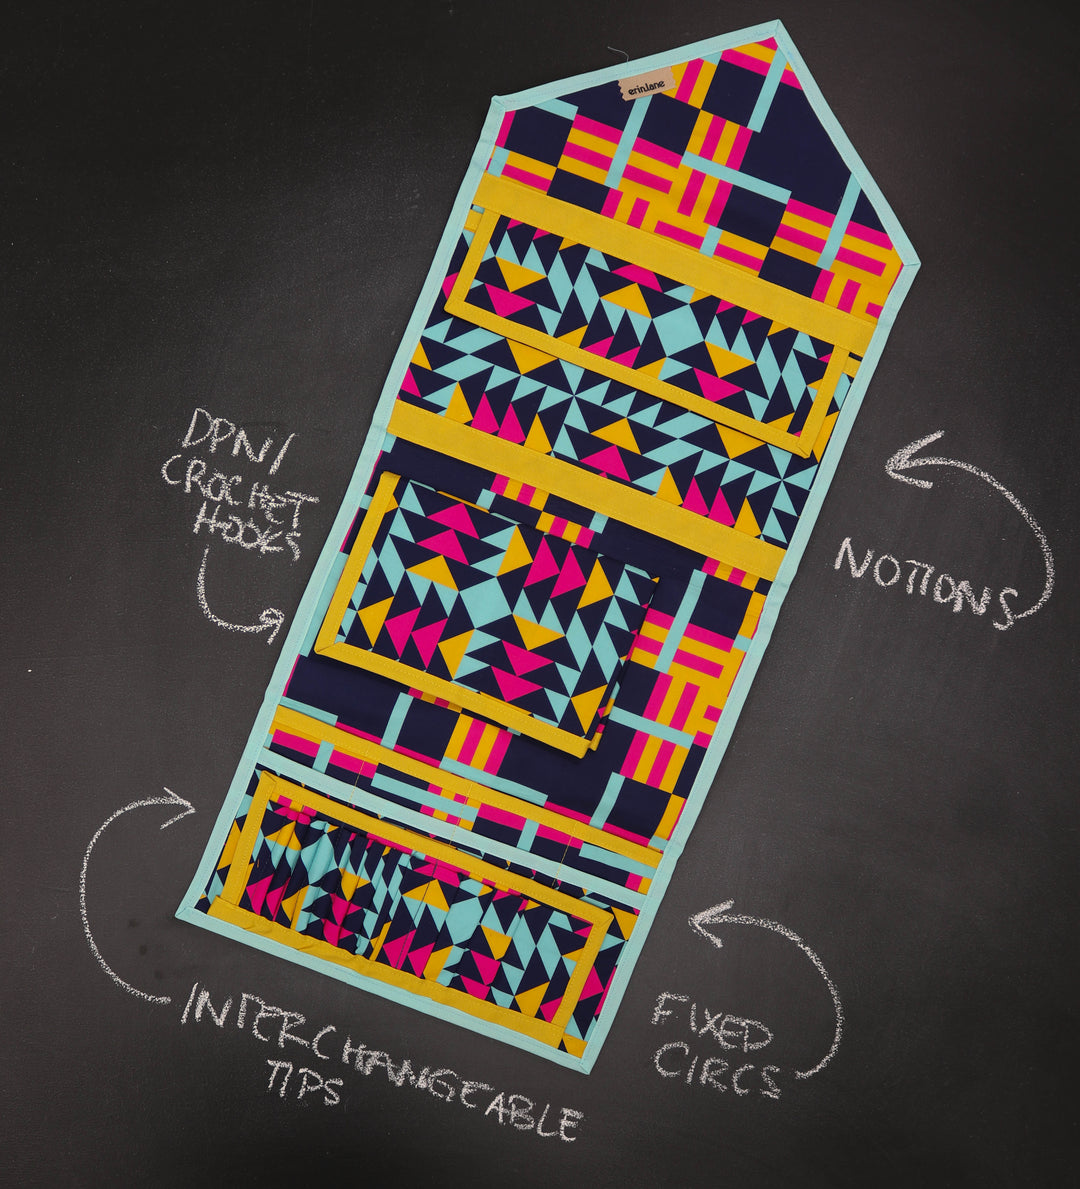 erin.lane
DPN/
CROCHET
HOOKS
NOTIONS
INTERCHANGEABLE
TIPS
FIXED
CIRCS